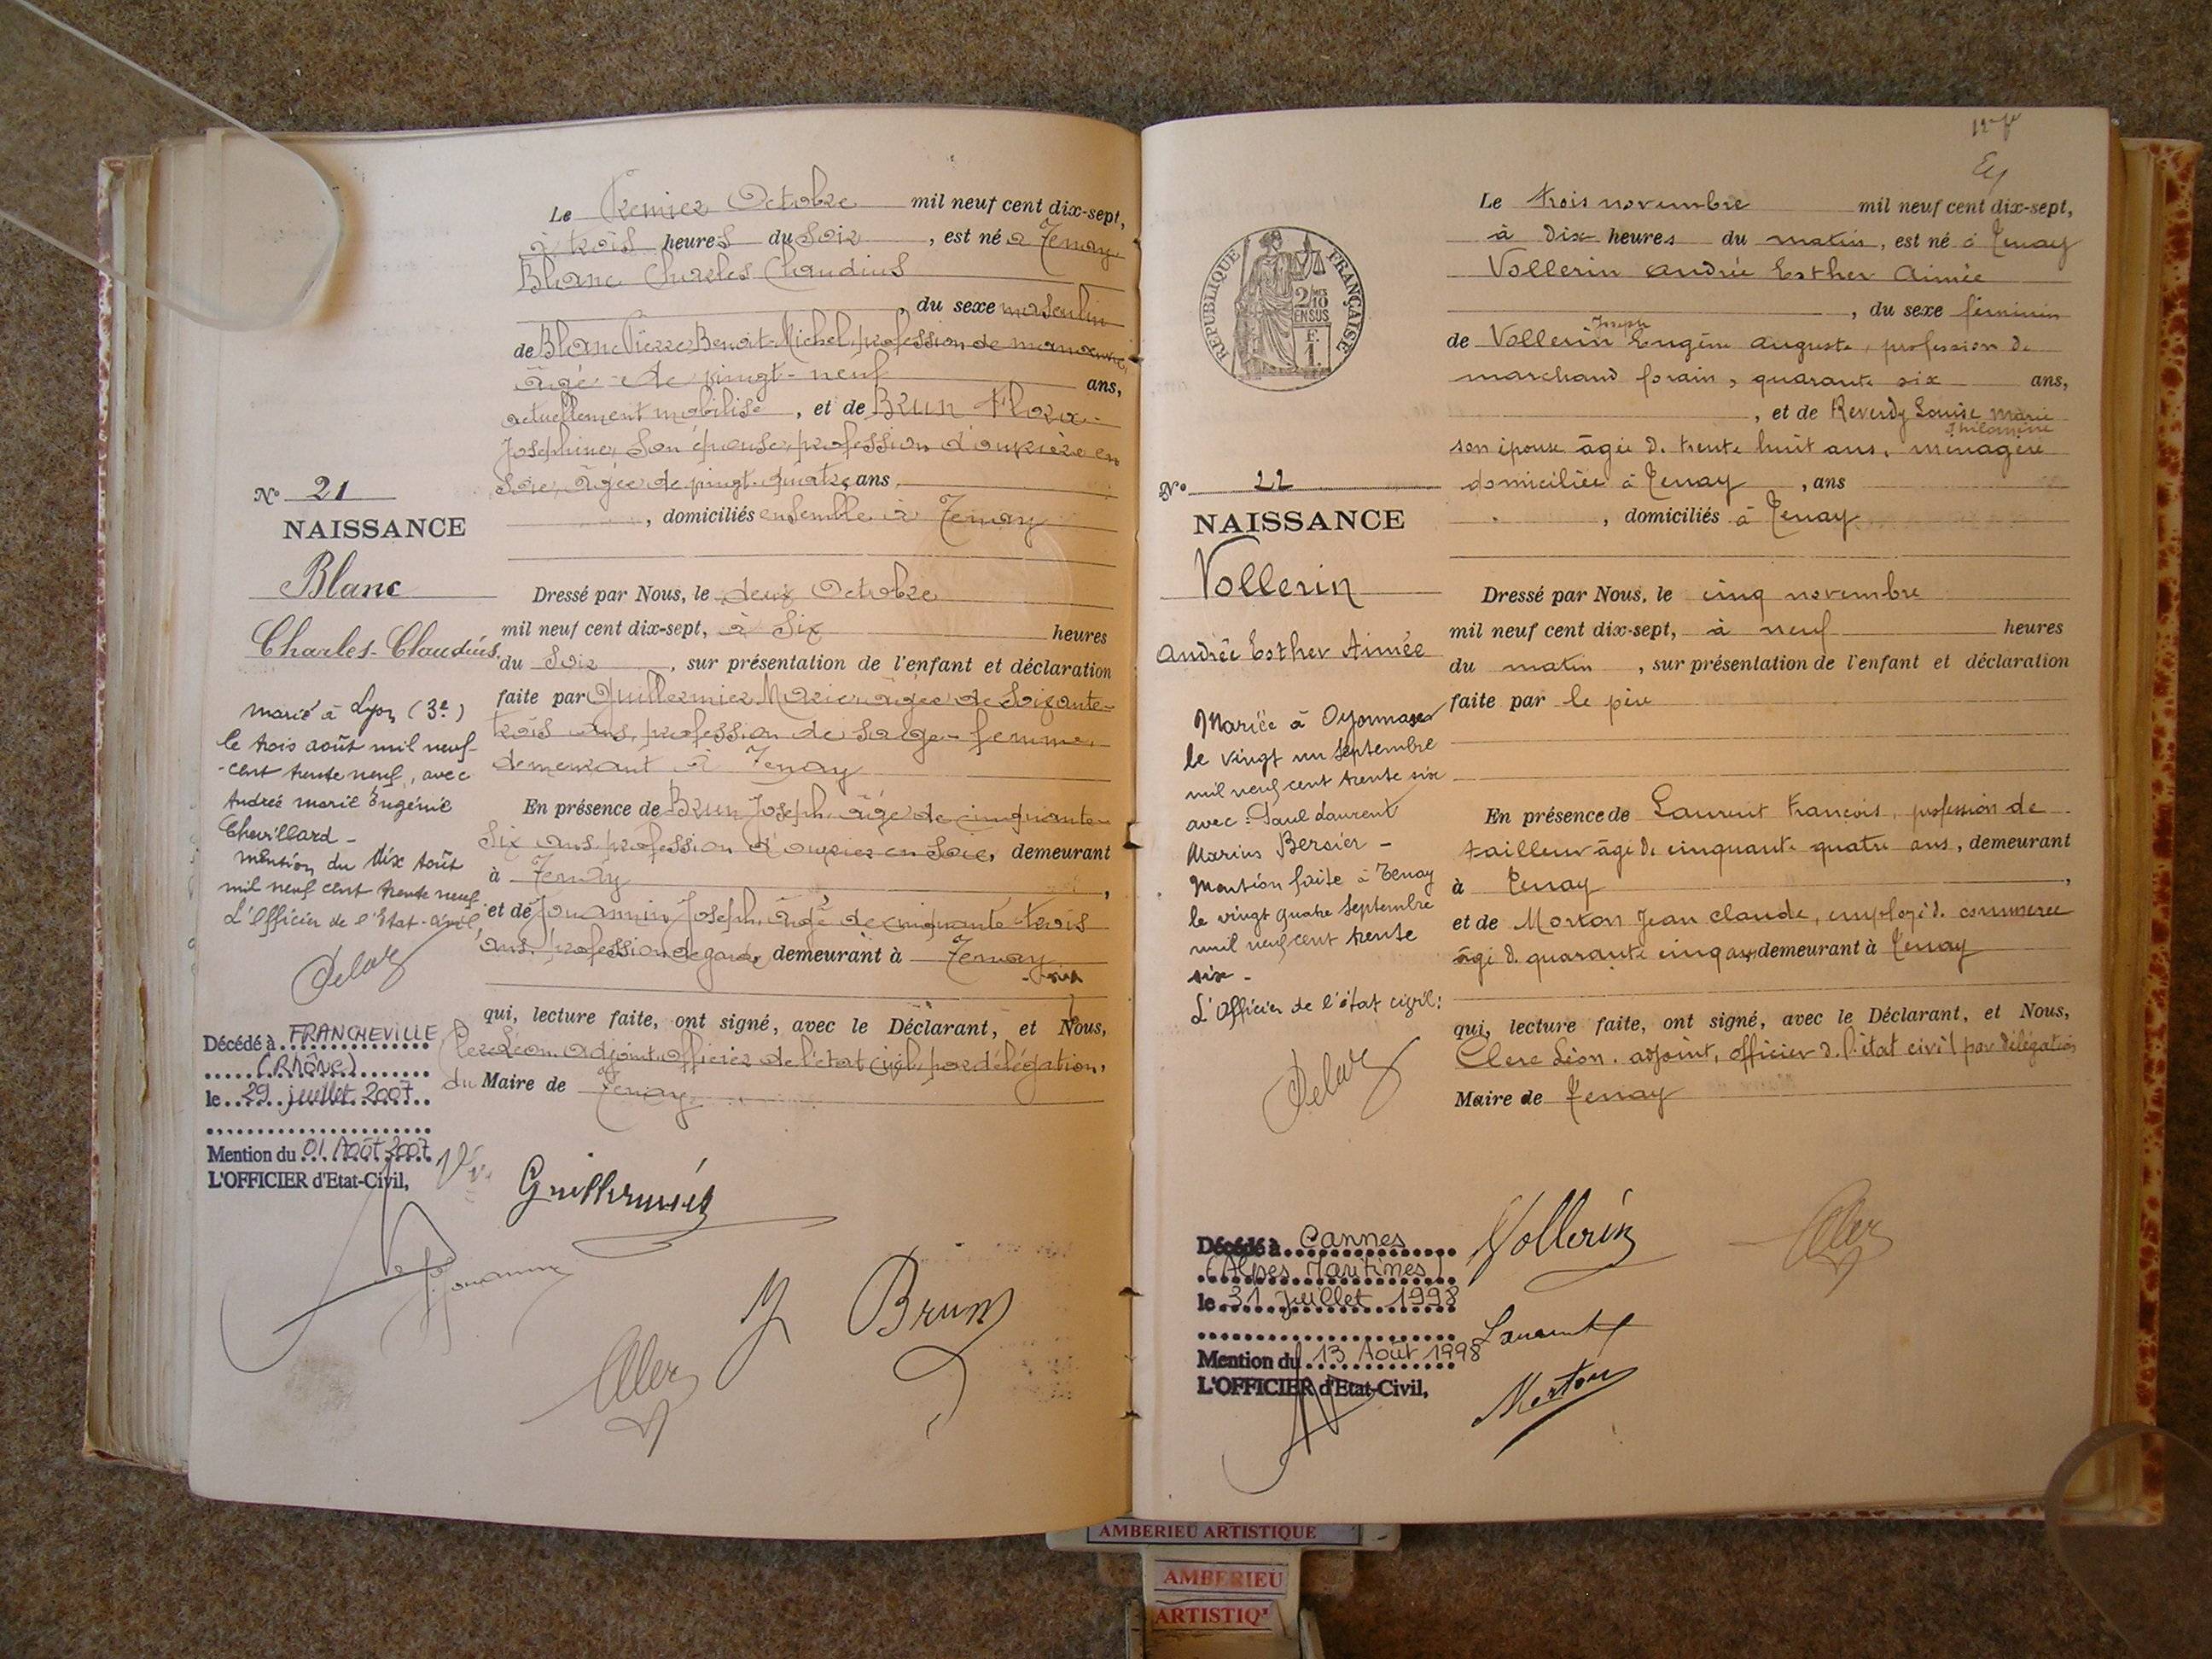 Le Premier Octobre mil neuf cent dix-sept,
à trois heures du Soir, est né à Tenay
Blanc Charles Claudius
, du sexe masculin
de Blanc Pierre Benoit-Michel, profession de manœuvre,
âgé de vingt-neuf ans,
actuellement mobilisé, et de Brun Flora-
Joséphine, Son épouse, profession d'ouvrière en
Soie, âgée de vingt-quatre ans
, domiciliés ensemble à Tenay
N° 21
NAISSANCE
Blanc
Charles-Claudius
Dressé par Nous, le deux Octobre
mil neuf cent dix-sept, à Six heures
du Soir, sur présentation de l'enfant et déclaration
faite par Guillermier Marie âgée de Soixante-
trois ans, profession de Sage-femme,
demeurant à Tenay
En présence de Brun Joseph, âgé de cinquante-
Six ans, profession d'ouvrier en Soie, demeurant
à Tenay,
et de Jouannin Joseph, âgé de cinquante trois
ans, profession de garde, demeurant à Tenay
qui, lecture faite, ont signé, avec le Déclarant, et Nous,
Clerc Léon, adjoint, officier de l'état civil, par délégation,
du Maire de Tenay
marié à Lyon (3e)
le trois août mil neuf-
-cent trente neuf, avec
Andrée Marie Eugénie
Chevillard -
mention du dix Août
mil neuf cent trente neuf.
L'Officier de l'Etat-Civil,
Décédé à FRANCHEVILLE
(Rhône)
le 29 juillet 2007
Mention du 01 Août 2007
L'OFFICIER d'Etat-Civil,
Vve Guillermier
Jouannin
J Brun
Clerc
Le trois novembre mil neuf cent dix-sept,
à dix heures du matin, est né à Tenay
Vollerin Andrée Esther Aimée
, du sexe féminin
Joseph
de Vollerin Eugène Auguste, profession de
marchand forain, quarante six ans,
, et de Reverdy Louise Marie
Philomène
son épouse âgée de trente huit ans, ménagère
domiciliée à Tenay, ans
, domiciliés à Tenay
REPUBLIQUE FRANÇAISE
2/10 EN SUS
F. 1.
N° 22
NAISSANCE
Vollerin
Andrée Esther Aimée
Dressé par Nous, le cinq novembre
mil neuf cent dix-sept, à neuf heures
du matin, sur présentation de l'enfant et déclaration
faite par le père
En présence de Laurent François, profession de
tailleur âgé de cinquante quatre ans, demeurant
à Tenay,
et de Morton Jean Claude, employé de commerce
âgé de quarante cinq ans, demeurant à Tenay
qui, lecture faite, ont signé, avec le Déclarant, et Nous,
Clerc Léon. adjoint, officier de l'état civil par délégation
Maire de Tenay
Mariée à Oyonnax
le vingt un septembre
mil neuf cent trente six
avec: Paul Laurent
Marius Bersier -
Mention faite à Tenay
le vingt quatre septembre
mil neuf cent trente
six -
L'Officier de l'état civil:
Décédé à Cannes
(Alpes Maritimes)
le 31 juillet 1998
Mention du 13 Août 1998
L'OFFICIER d'Etat-Civil,
Vollerin
Clerc
Laurent
Morton
AMBERIEU ARTISTIQUE
AMBERIEU
ARTISTIQ